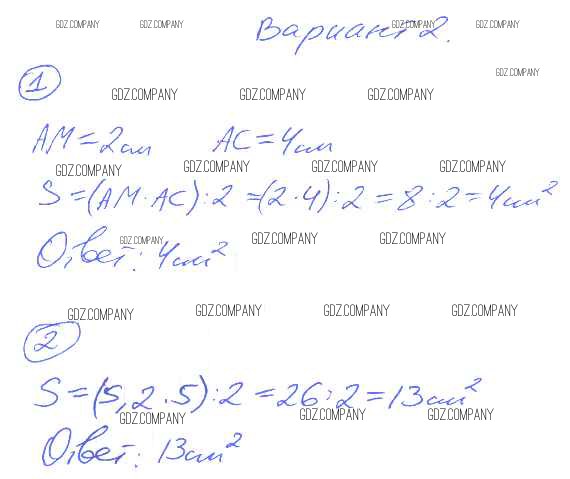 GDZ.COMPANY GDZ.COMPANY Вариант 2. GDZ.COMPANY GDZ.COMPANY
GDZ.COMPANY
1
GDZ.COMPANY GDZ.COMPANY GDZ.COMPANY
AM=2см AC=4см
GDZ.COMPANY GDZ.COMPANY GDZ.COMPANY GDZ.COMPANY
S=(AM·AC):2=(2·4):2=8:2=4см²
GDZ.COMPANY GDZ.COMPANY GDZ.COMPANY
Ответ: 4см²
GDZ.COMPANY GDZ.COMPANY GDZ.COMPANY GDZ.COMPANY
2
S=(5,2·5):2=26:2=13см²
GDZ.COMPANY GDZ.COMPANY GDZ.COMPANY
Ответ: 13см²